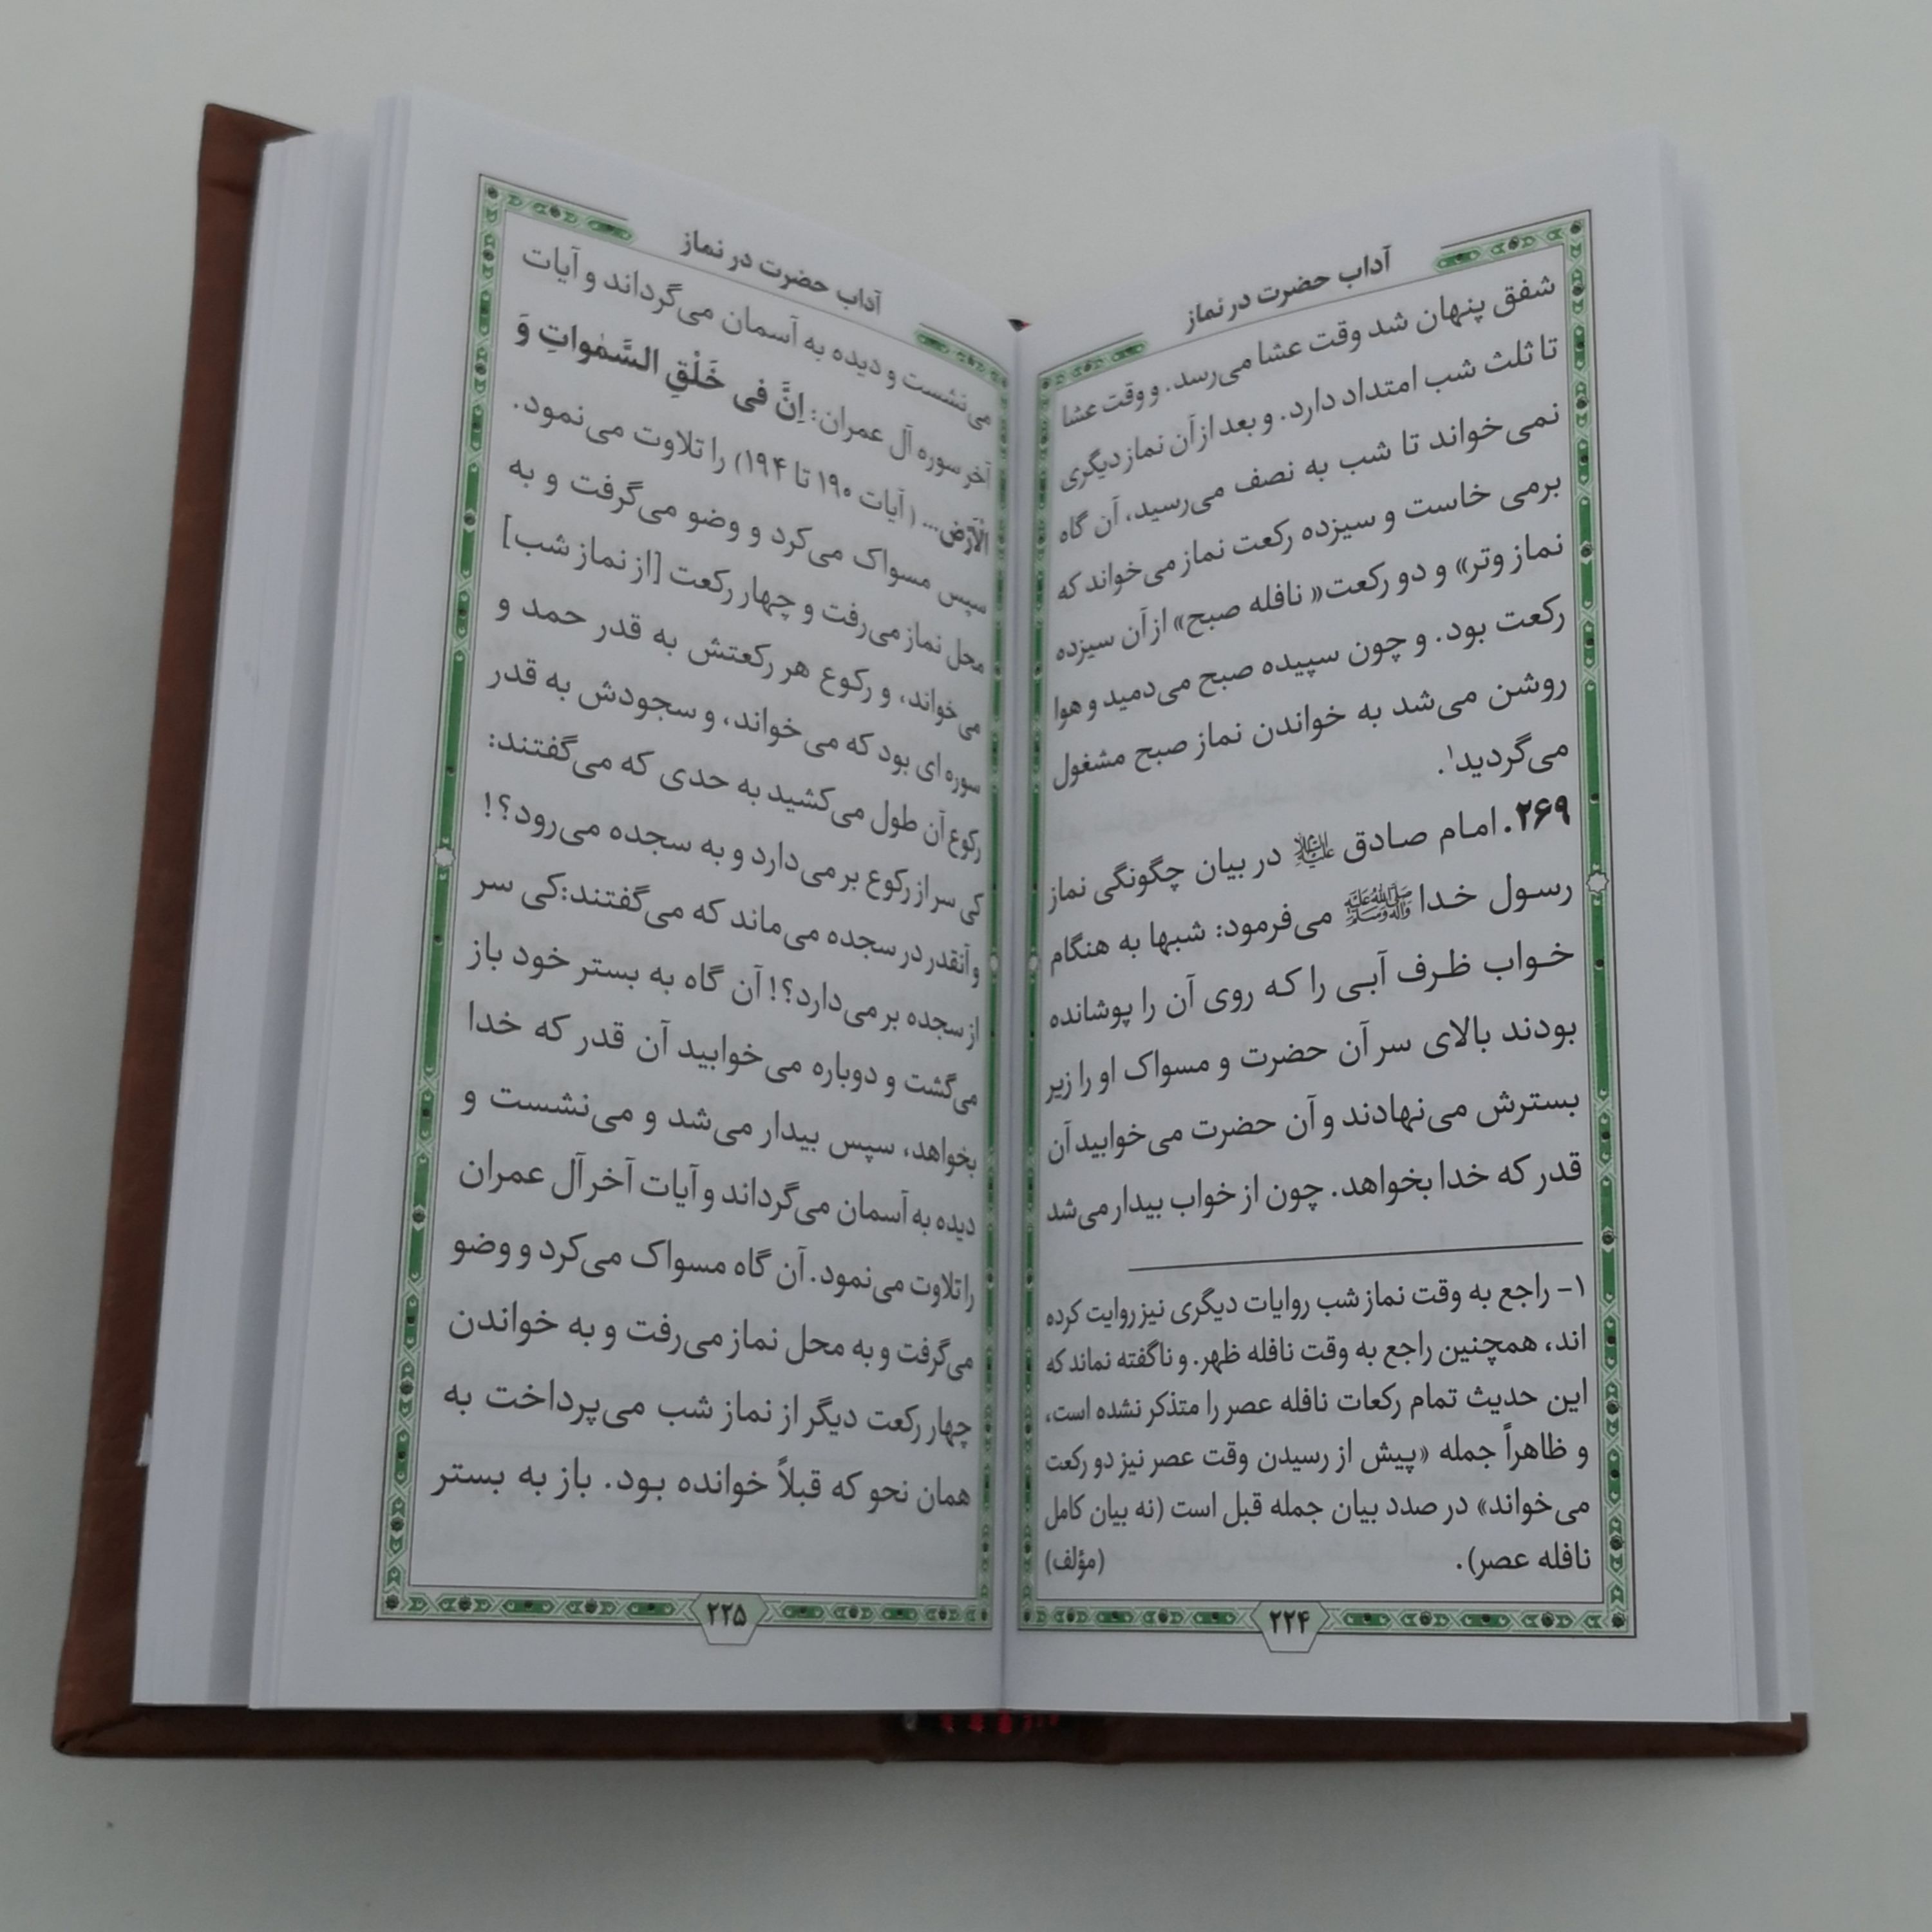 آداب حضرت در نماز
شفق پنهان شد وقت عشا می‌رسد. و وقت عشا
تا ثلث شب امتداد دارد. و بعد از آن نماز دیگری
نمی‌خواند تا شب به نصف می‌رسید، آن گاه
برمی خاست و سیزده رکعت نماز می‌خواند که
نماز وتر» و دو رکعت« نافله صبح» از آن سیزده
رکعت بود. و چون سپیده صبح می‌دمید و هوا
روشن می‌شد به خواندن نماز صبح مشغول
می‌گردید¹.
۲۶۹. امام صادق علیه‌السلام در بیان چگونگی نماز
رسول خدا صلی‌الله‌علیه‌وآله‌وسلم می‌فرمود: شبها به هنگام
خواب ظرف آبی را که روی آن را پوشانده
بودند بالای سر آن حضرت و مسواک او را زیر
بسترش می‌نهادند و آن حضرت می‌خوابید آن
قدر که خدا بخواهد. چون از خواب بیدار می‌شد
۱- راجع به وقت نماز شب روایات دیگری نیز روایت کرده
اند، همچنین راجع به وقت نافله ظهر. و ناگفته نماند که
این حدیث تمام رکعات نافله عصر را متذکر نشده است،
و ظاهراً جمله «پیش از رسیدن وقت عصر نیز دو رکعت
می‌خواند» در صدد بیان جمله قبل است (نه بیان کامل
نافله عصر). (مؤلف)
۲۲۴
آداب حضرت در نماز
می‌نشست و دیده به آسمان می‌گرداند و آیات
آخر سوره آل عمران: اِنَّ فی خَلْقِ السَّمٰواتِ وَ
الْاَرْضِ... (آیات ۱۹۰ تا ۱۹۴) را تلاوت می‌نمود.
سپس مسواک می‌کرد و وضو می‌گرفت و به
محل نماز می‌رفت و چهار رکعت [از نماز شب]
می‌خواند، و رکوع هر رکعتش به قدر حمد و
سوره ای بود که می‌خواند، و سجودش به قدر
رکوع آن طول می‌کشید به حدی که می‌گفتند:
کی سر از رکوع بر می‌دارد و به سجده می‌رود؟!
و آنقدر در سجده می‌ماند که می‌گفتند:کی سر
از سجده بر می‌دارد؟! آن گاه به بستر خود باز
می‌گشت و دوباره می‌خوابید آن قدر که خدا
بخواهد، سپس بیدار می‌شد و می‌نشست و
دیده به آسمان می‌گرداند و آیات آخر آل عمران
را تلاوت می‌نمود. آن گاه مسواک می‌کرد و وضو
می‌گرفت و به محل نماز می‌رفت و به خواندن
چهار رکعت دیگر از نماز شب می‌پرداخت به
همان نحو که قبلاً خوانده بود. باز به بستر
۲۲۵